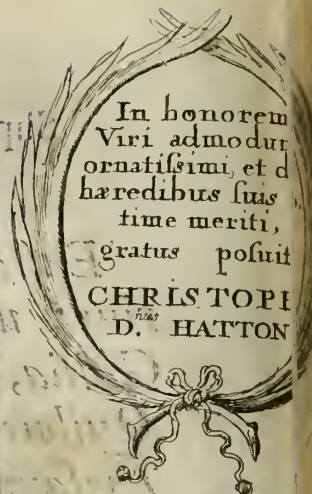 In honorem
Viri admodu
ornatiſsimi, et d
hæredibus ſuis
time meriti,
gratus poſuit
CHRISTOP
D.nus HATTON